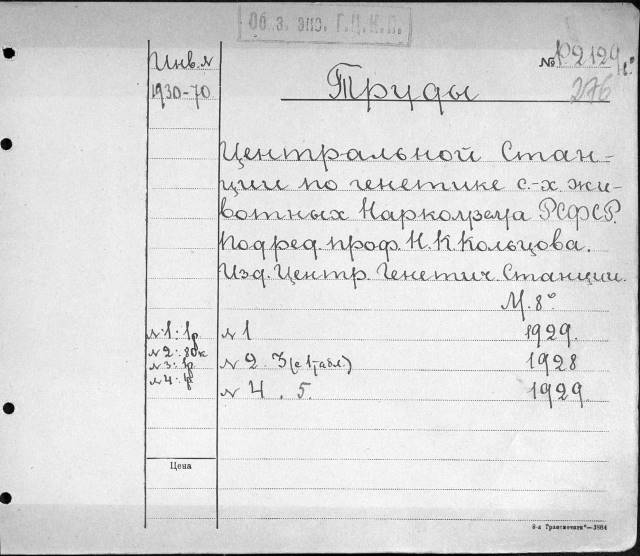 Об. э. эпз. Г.Ц.К.П.
Инв. № № Р2129
1930-70 Труды 276
Центральной Стан-
ции по генетике с.-х. жи-
вотных Наркомзема РСФСР.
Под ред. проф. Н.К. Кольцова.
Изд. Центр. Генетич. Станции.
М. 8°
№1: 1р № 1 1929.
№2: 80к
№3: 1р № 2. 3 (с 1 табл.) 1928
№4: № 4. 5. 1929.
Цена
8-я Транспечати"—3864